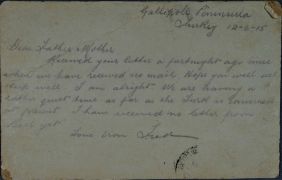 Gallipoli Peninsula
Turkey 12-6-15
Dear Father & Mother
Received your letter a fortnight ago since
when we have received no mail. Hope you well and
I am alright. We are having a
rather quiet time as far as the Turk is concerned
at present. I have received no letter from
yet
Love from Fred